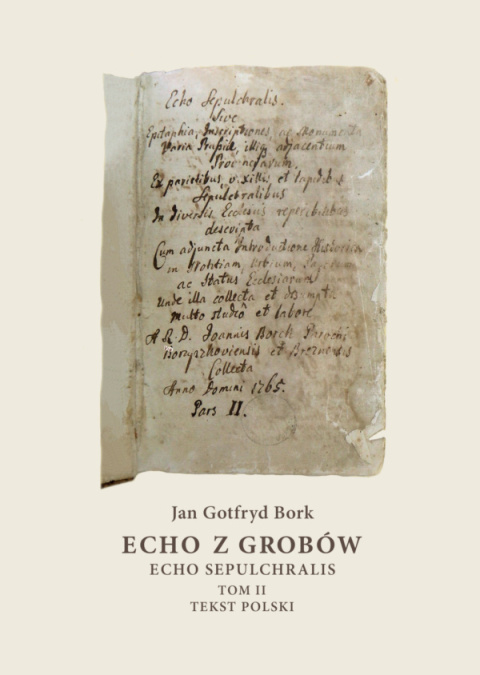 Echo Sepulchralis.
Sive
Epitaphia, Inscriptiones, ac Monumenta
Varia Prussiæ, illiq adjacentium
Provinciarum.
Ex parietibus, vexillis et lapidibus
Sepulchralibus
In diversis Ecclesiis reperibilibus
descripta
Cum adjuncta Introductione Historica
in Notitiam, Urbium, Pagorum
ac Status Ecclesiarum
Unde illa collecta et
multo studio et labore
A R. D. Joannis Borck Parochi
Borzyszkoviensis et Brzeznensis
Collecta
Anno Domini 1765.
Pars II.
Jan Gotfryd Bork
ECHO Z GROBÓW
ECHO SEPULCHRALIS
TOM II
TEKST POLSKI